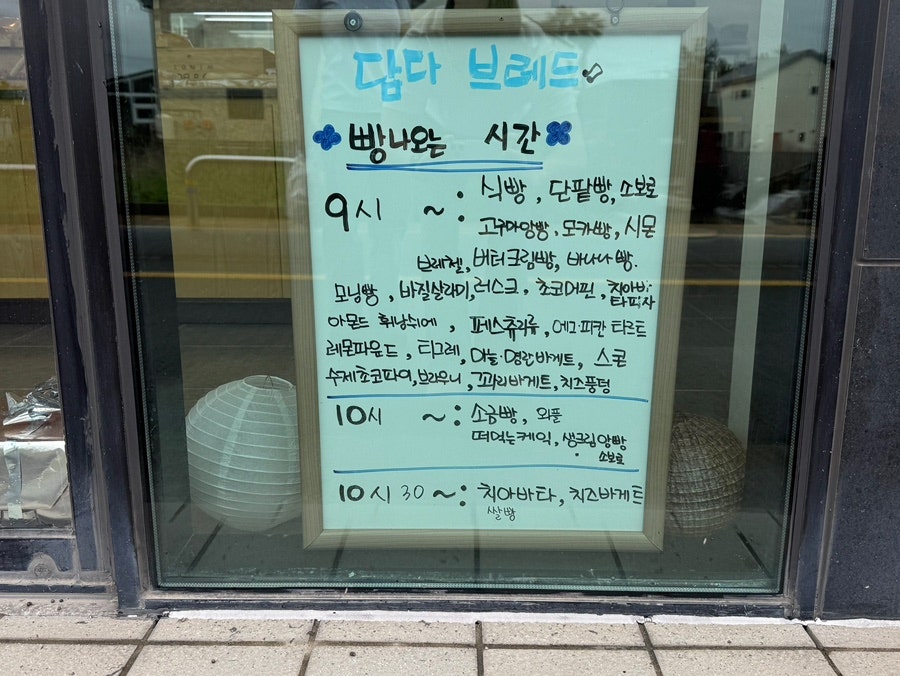 담다 브레드
빵나오는 시간
9시 ~ : 식빵, 단팥빵, 소보로
고구마앙빵, 모카빵, 시몬
브레첼, 버터크림빵, 바나나빵.
모닝빵, 바질살라미, 러스크, 초코머핀, 치아바
타피자
아몬드 휘낭쉬에, 페스츄리류, 에그·피칸 타르트
레몬파운드, 티그레, 마늘·명란바게트, 스콘
수제초코파이, 브라우니, 꽈리바게트, 치즈퐁덩
10시 ~ : 소금빵, 와플
떠먹는케익, 생크림앙빵
소보로
10시 30 ~ : 치아바타, 치즈바게트
쌀빵